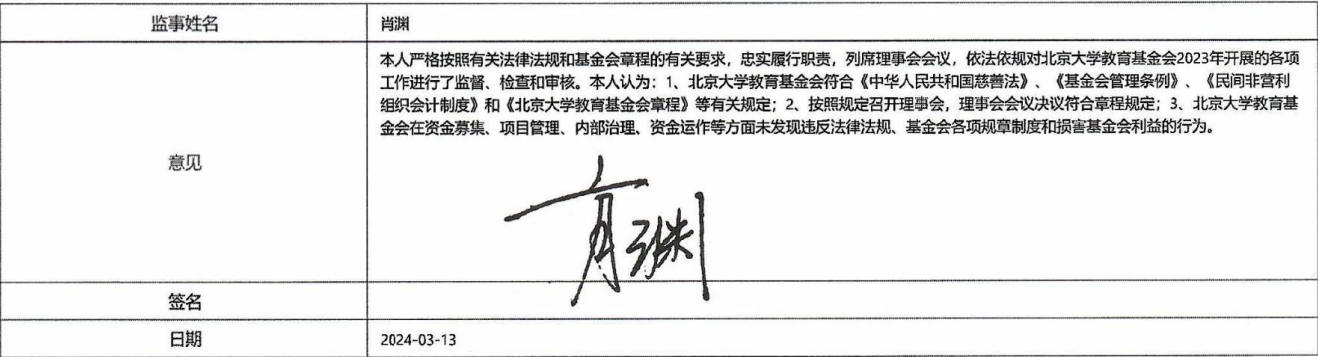 监事姓名
肖渊
意见
本人严格按照有关法律法规和基金会章程的有关要求，忠实履行职责，列席理事会会议，依法依规对北京大学教育基金会2023年开展的各项
工作进行了监督、检查和审核。本人认为：1、北京大学教育基金会符合《中华人民共和国慈善法》、《基金会管理条例》、《民间非营利
组织会计制度》和《北京大学教育基金会章程》等有关规定；2、按照规定召开理事会，理事会会议决议符合章程规定；3、北京大学教育基
金会在资金募集、项目管理、内部治理、资金运作等方面未发现违反法律法规、基金会各项规章制度和损害基金会利益的行为。
肖渊
签名
日期
2024-03-13